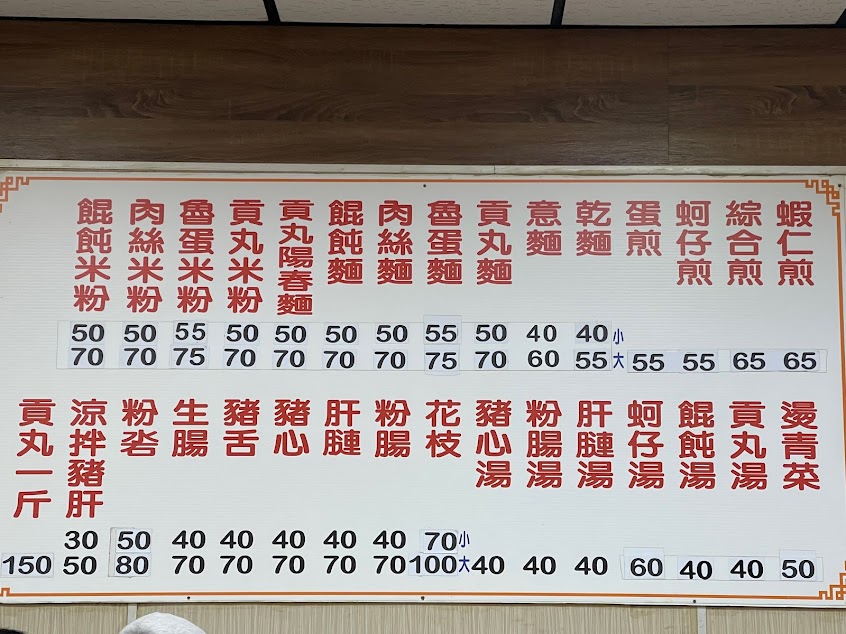 蝦仁煎 65
綜合煎 65
蚵仔煎 55
蛋煎 55
乾麵 小 40 大 55
意麵 40 60
貢丸麵 50 70
魯蛋麵 55 75
肉絲麵 50 70
餛飩麵 50 70
貢丸陽春麵 50 70
貢丸米粉 50 70
魯蛋米粉 55 75
肉絲米粉 50 70
餛飩米粉 50 70
燙青菜 50
貢丸湯 40
餛飩湯 40
蚵仔湯 60
肝腱湯 40
粉腸湯 40
豬心湯 40
花枝 小 70 大 100
粉腸 40 70
肝腱 40 70
豬心 40 70
豬舌 40 70
生腸 40 70
粉砻 50 80
涼拌豬肝 30 50
貢丸一斤 150